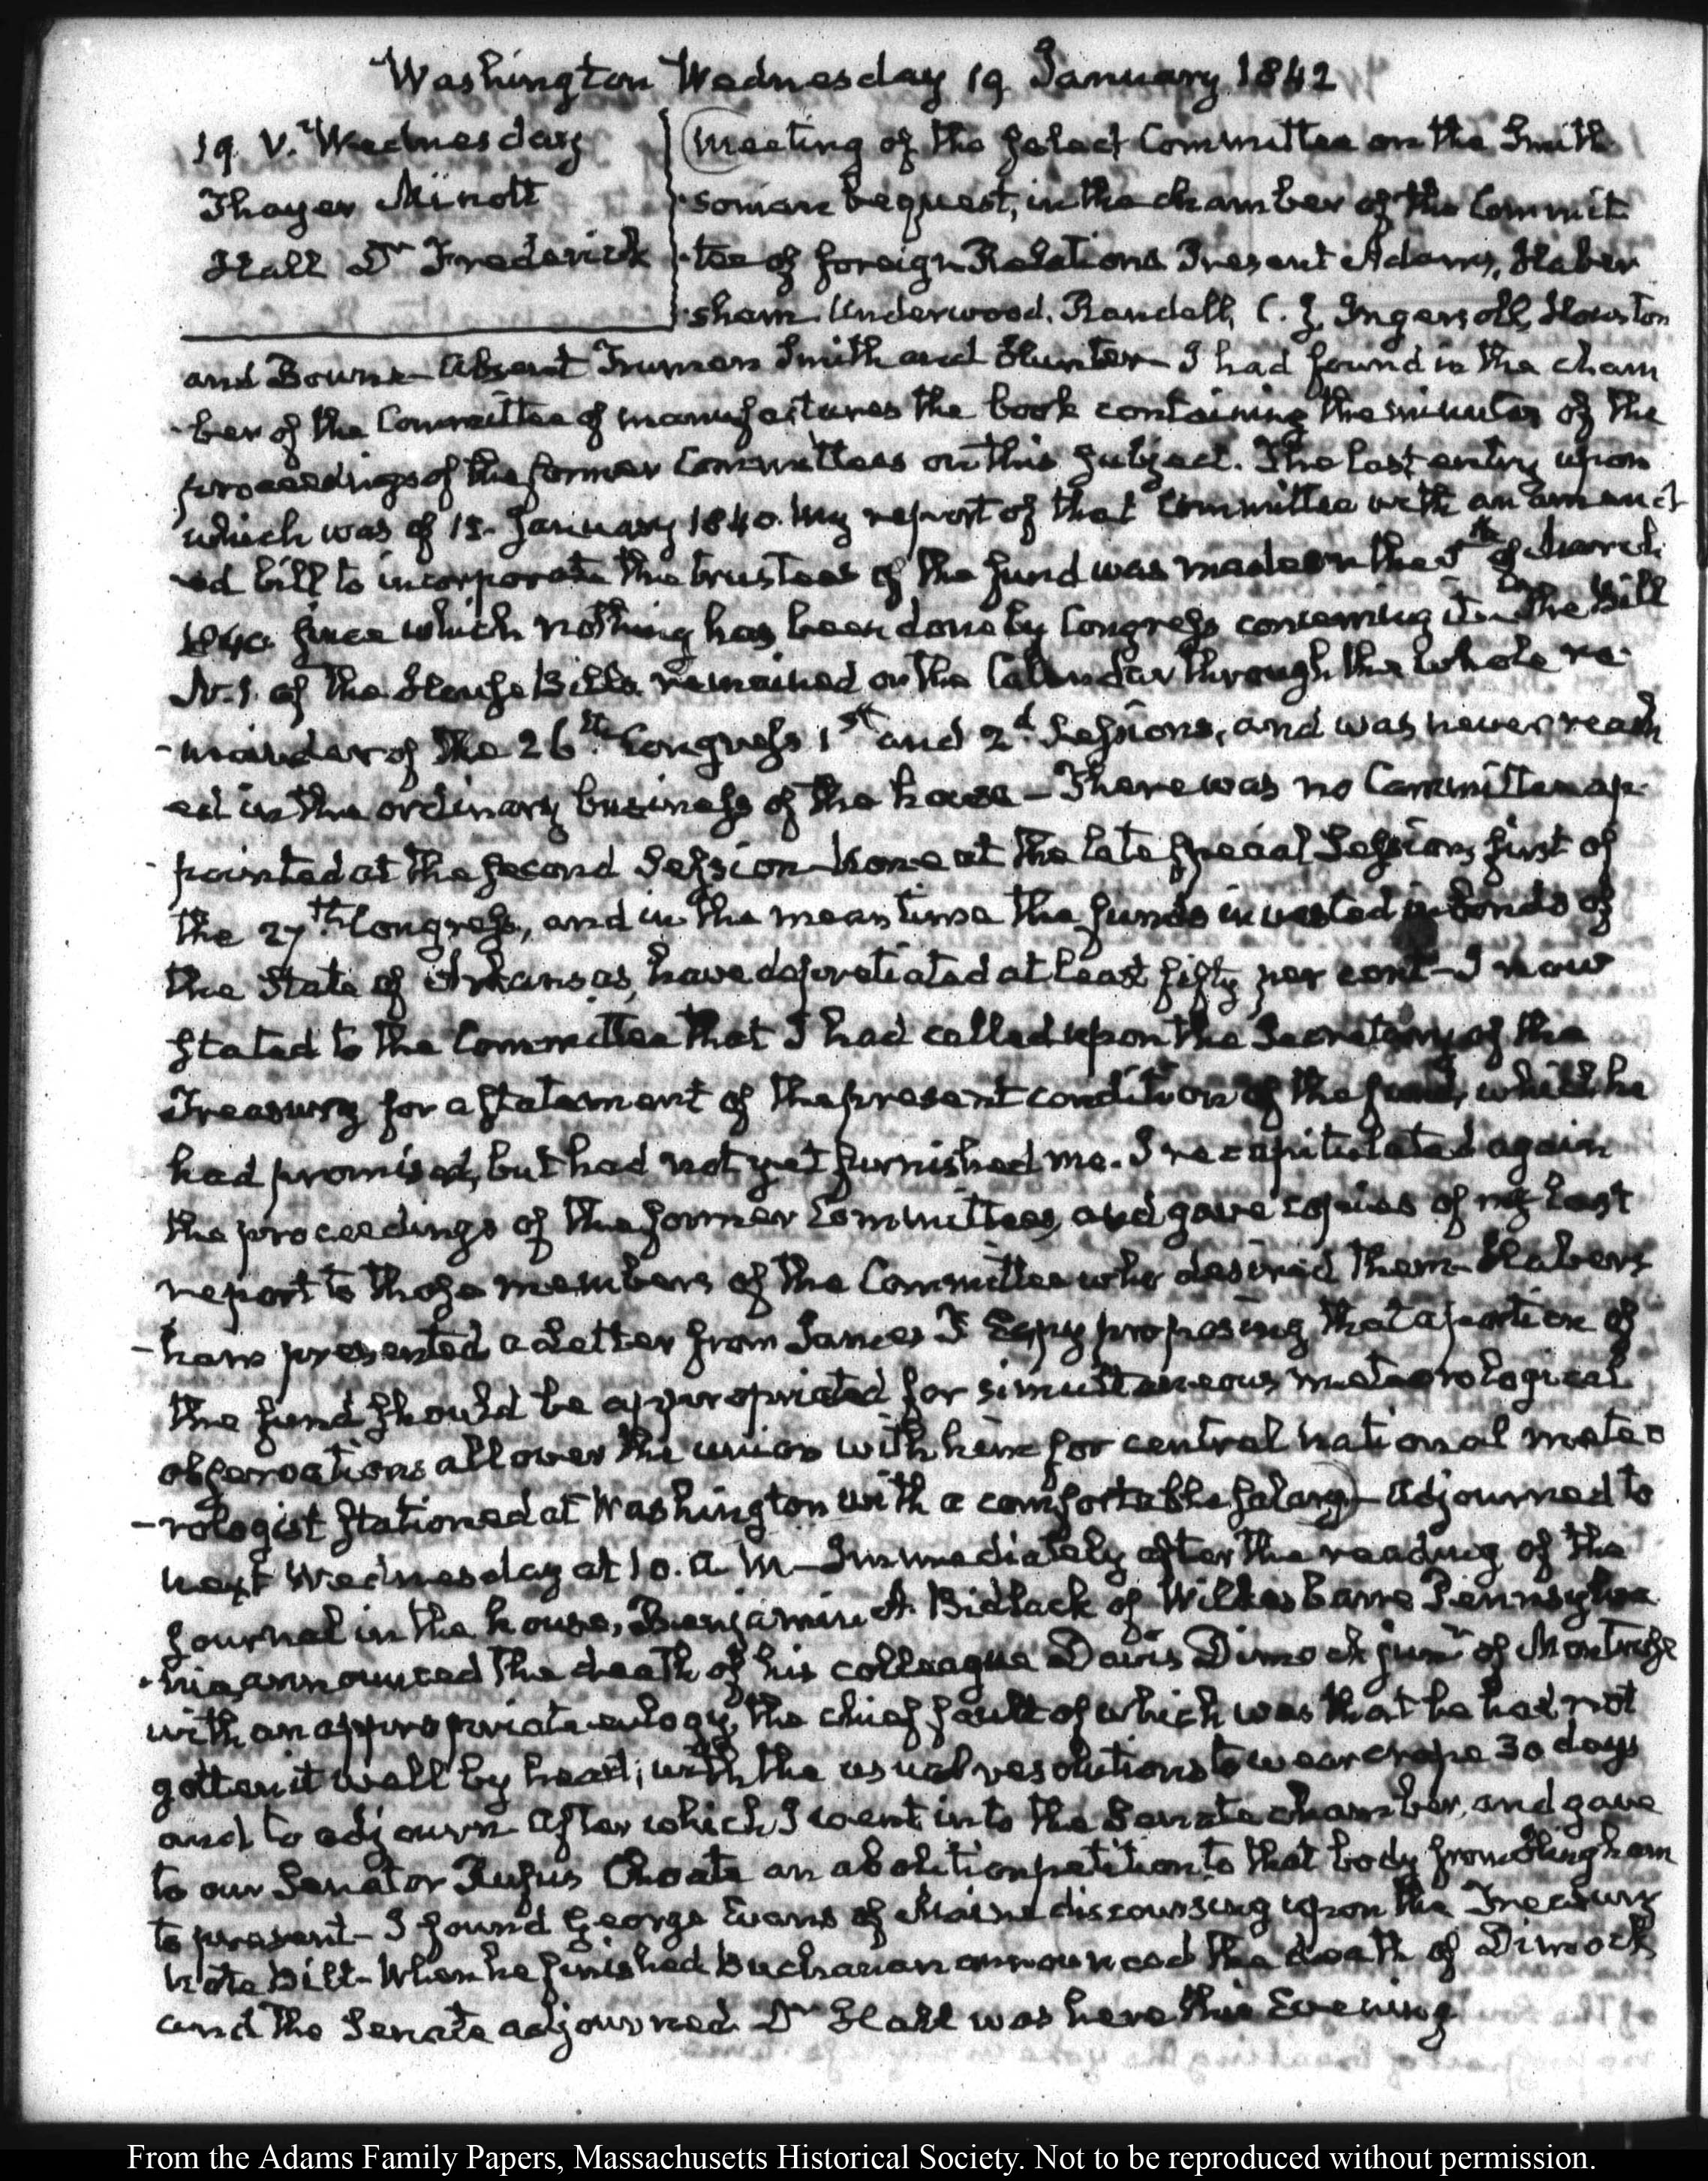 Washington Wednesday 19 January 1842
19. V. Wednesday
Thayer Minott
Hall Dr Frederick
Meeting of the select Committee on the Smith
-sonian bequest, in the chamber of the Commit
-tee of foreign Relations Present Adams, Haber
-sham. Underwood. Randall, C. J. Ingersoll, Houston
and Bowne - Absent Truman Smith and Hunter - I had found in the cham
-ber of the Committee of manufactures the book containing the minutes of the
proceedings of the former Committees on this subject. The last entry upon
which was of 15. January 1840. My report of that Committee with an amend
-ed bill to incorporate the trustees of the fund was made on the 5th of March
1840 since which nothing has been done by Congress concerning it. The Bill
N. 1. of the House Bills remained on the Calendar through the whole re
-mainder of the 26th Congress 1st and 2d Sessions, and was never reach
ed in the ordinary business of the house - There was no Committee ap
-pointed at the second Session - None at the late special Session, first of
the 27th Congress, and in the mean time the funds invested in bonds of
the State of Arkansas, have depretiated at least fifty per cent - I now
stated to the Committee that I had called upon the Secretary of the
Treasury for a statement of the present condition of the fund, which he
had promised, but had not yet furnished me. I recapitulated again
the proceedings of the former Committees, and gave copies of my last
report to those members of the Committee who desired them - Habers
-ham presented a Letter from James P Espy proposing that a portion of
the fund should be appropriated for simultaneous meteorological
observations all over the union with him for central national meteo
-rologist stationed at Washington with a comfortable salary - Adjourned to
next Wednesday at 10. A. M - Immediately after the reading of the
Journal in the house, Benjamin A. Bidlack of Wilkesbarre Pennsylva
-nia, announced the death of his colleague Davis Dimock junr of Montrose
with an appropriate eulogy, the chief fault of which was that he had not
gotten it well by heart; with the usual resolutions to wear crape 30 days
and to adjourn - After which I went into the Senate chamber, and gave
to our Senator Rufus Choate an abolition petition to that body from Hingham
to present - I found George Evans of Maine discoursing upon the Treasury
note Bill - When he finished Buchanan announced the death of Dimock
and the Senate adjourned. Dr Hall was here this Evening
From the Adams Family Papers, Massachusetts Historical Society. Not to be reproduced without permission.